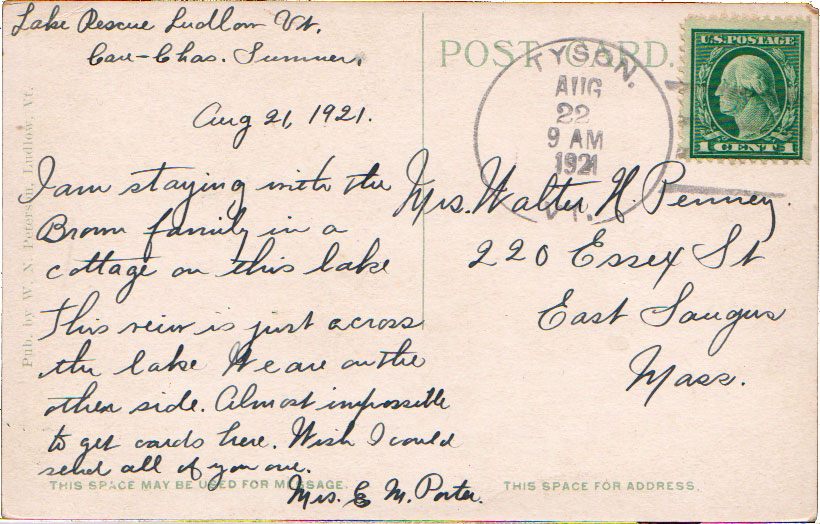 Lake Rescue Ludlow Vt.
Care-Chas. Sumner.
Aug 21, 1921.
I am staying with the
Brown family in a
cottage on this lake
This veiw is just across
the lake We are on the
other side. Almost impossible
to get cards here. Wish I could
send all of you one.
Mrs. E M. Porter.
THIS SPACE MAY BE USED FOR MESSAGE.
Pub. by W. N. Peterson, Ludlow, Vt.
POST CARD.
TYSON.
AUG
22
9 AM
1921
VT.
U.S. POSTAGE
1 CENT 1
Mrs. Walter H. Penney.
220 Essex St
East Saugus
Mass.
THIS SPACE FOR ADDRESS.